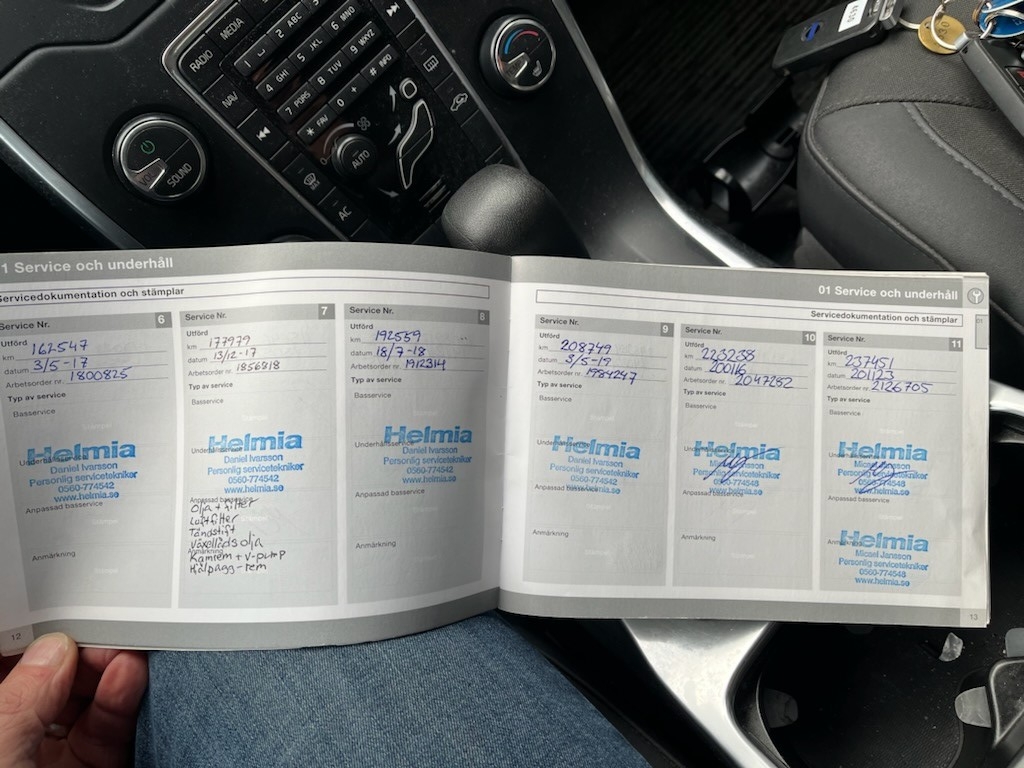 RADIO
MEDIA
1
2 ABC
3
4 GHI
5 JKL
6 MNO
7 PQRS
8 TUV
9 WXYZ
* FAV
0 +
NAV
AUTO
AC
SOUND
1 Service och underhåll
Servicedokumentation och stämplar
Service Nr. 6
km 162547
datum 3/5-17
Arbetsorder nr. 1800825
Typ av service
Basservice
Helmia
Daniel Ivarsson
Personlig servicetekniker
0560-774542
www.helmia.se
Anpassad basservice
Anmärkning
12
Service Nr. 7
Utförd
km 177979
datum 13/12-17
Arbetsorder nr. 1856818
Typ av service
Basservice
Helmia
Daniel Ivarsson
Personlig servicetekniker
0560-774542
www.helmia.se
Anpassad basservice
Olja + filter
Luftfilter
Tändstift
Växellåds olja
Anmärkning
Kamrem + v-pump
Hjälpagg-rem
Service Nr. 8
Utförd
km 192559
datum 18/7-18
Arbetsorder nr. 1912314
Typ av service
Basservice
Underhållsservice
Helmia
Daniel Ivarsson
Personlig servicetekniker
0560-774542
www.helmia.se
Anpassad basservice
Anmärkning
01 Service och underhåll
Servicedokumentation och stämplar
Service Nr. 9
Utförd
km 208749
datum 3/5-19
Arbetsorder nr. 1984247
Typ av service
Basservice
Helmia
Daniel Ivarsson
Personlig servicetekniker
0560-774542
www.helmia.se
Anpassad basservice
Anmärkning
Service Nr. 10
Utförd
km 223238
datum 200116
Arbetsorder nr. 2047252
Typ av service
Basservice
Helmia
Personlig servicetekniker
0560-774548
www.helmia.se
Anpassad basservice
Anmärkning
Service Nr. 11
Utförd
km 237451
datum 201123
Arbetsorder nr. 2126705
Typ av service
Basservice
Helmia
Personlig servicetekniker
0560-774548
www.helmia.se
Anpassad basservice
Anmärkning
Helmia
Micael Jansson
Personlig servicetekniker
0560-774548
www.helmia.se
01
13